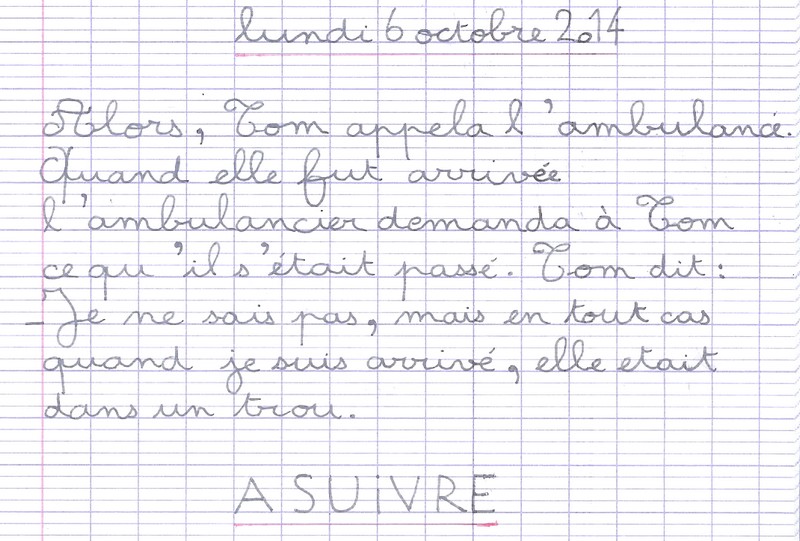 lundi 6 octobre 2014
Alors, Tom appela l'ambulance.
Quand elle fut arrivée
l'ambulancier demanda à Tom
ce qu'il s'était passé. Tom dit :
_Je ne sais pas, mais en tout cas
quand je suis arrivé, elle etait
dans un trou.
A SUiVRE